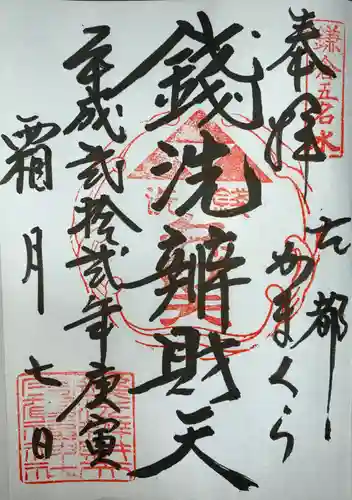 鎌倉五名水
奉拝
古都
かまくら
錢洗辨財天
平成弐拾弐年庚寅
霜月
七日